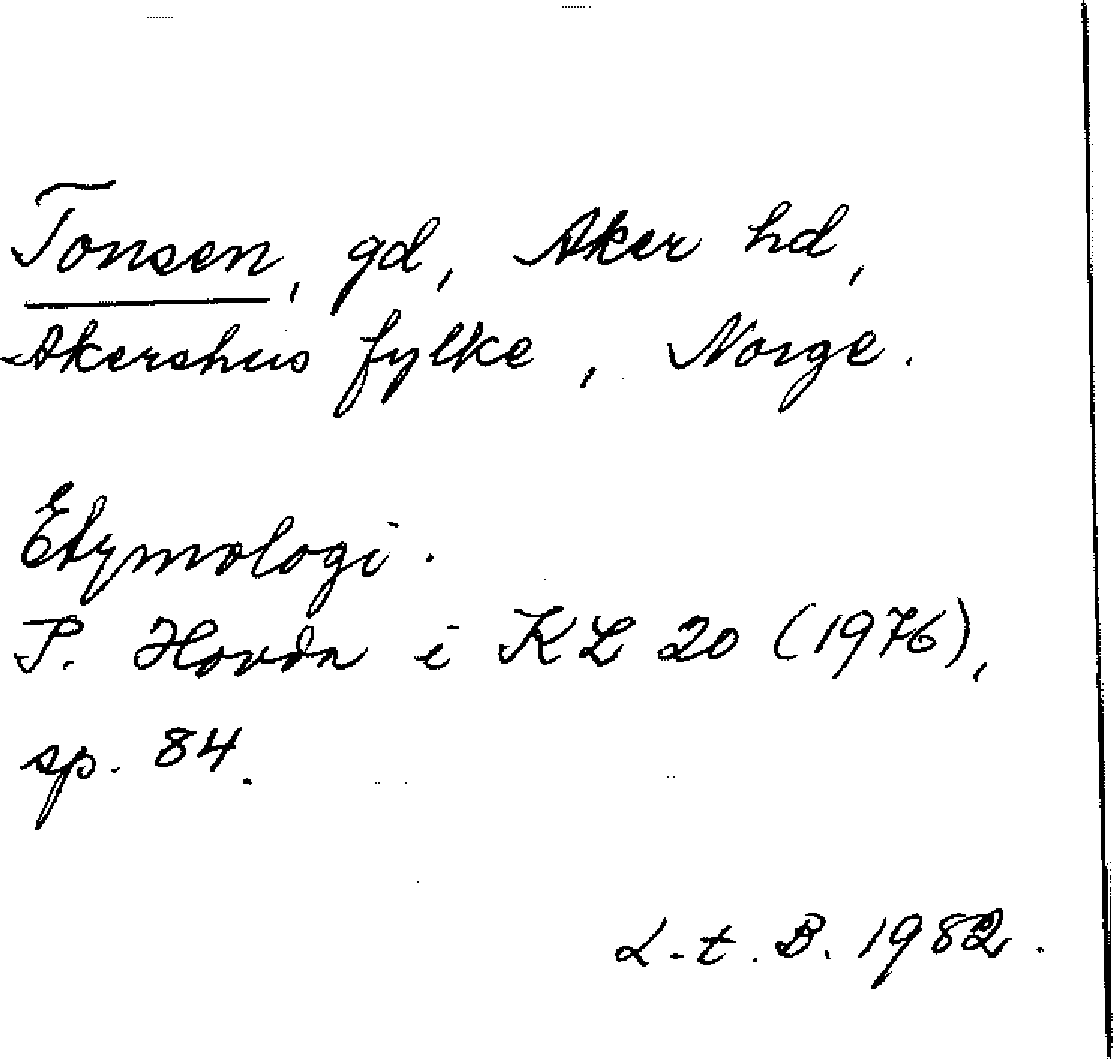 Tonsen, gd, Aker hd,
Akershus fylke, Norge.
Etymologi.
P. Hovda i KL 20 (1976),
sp. 84.
L.t.B. 1982.